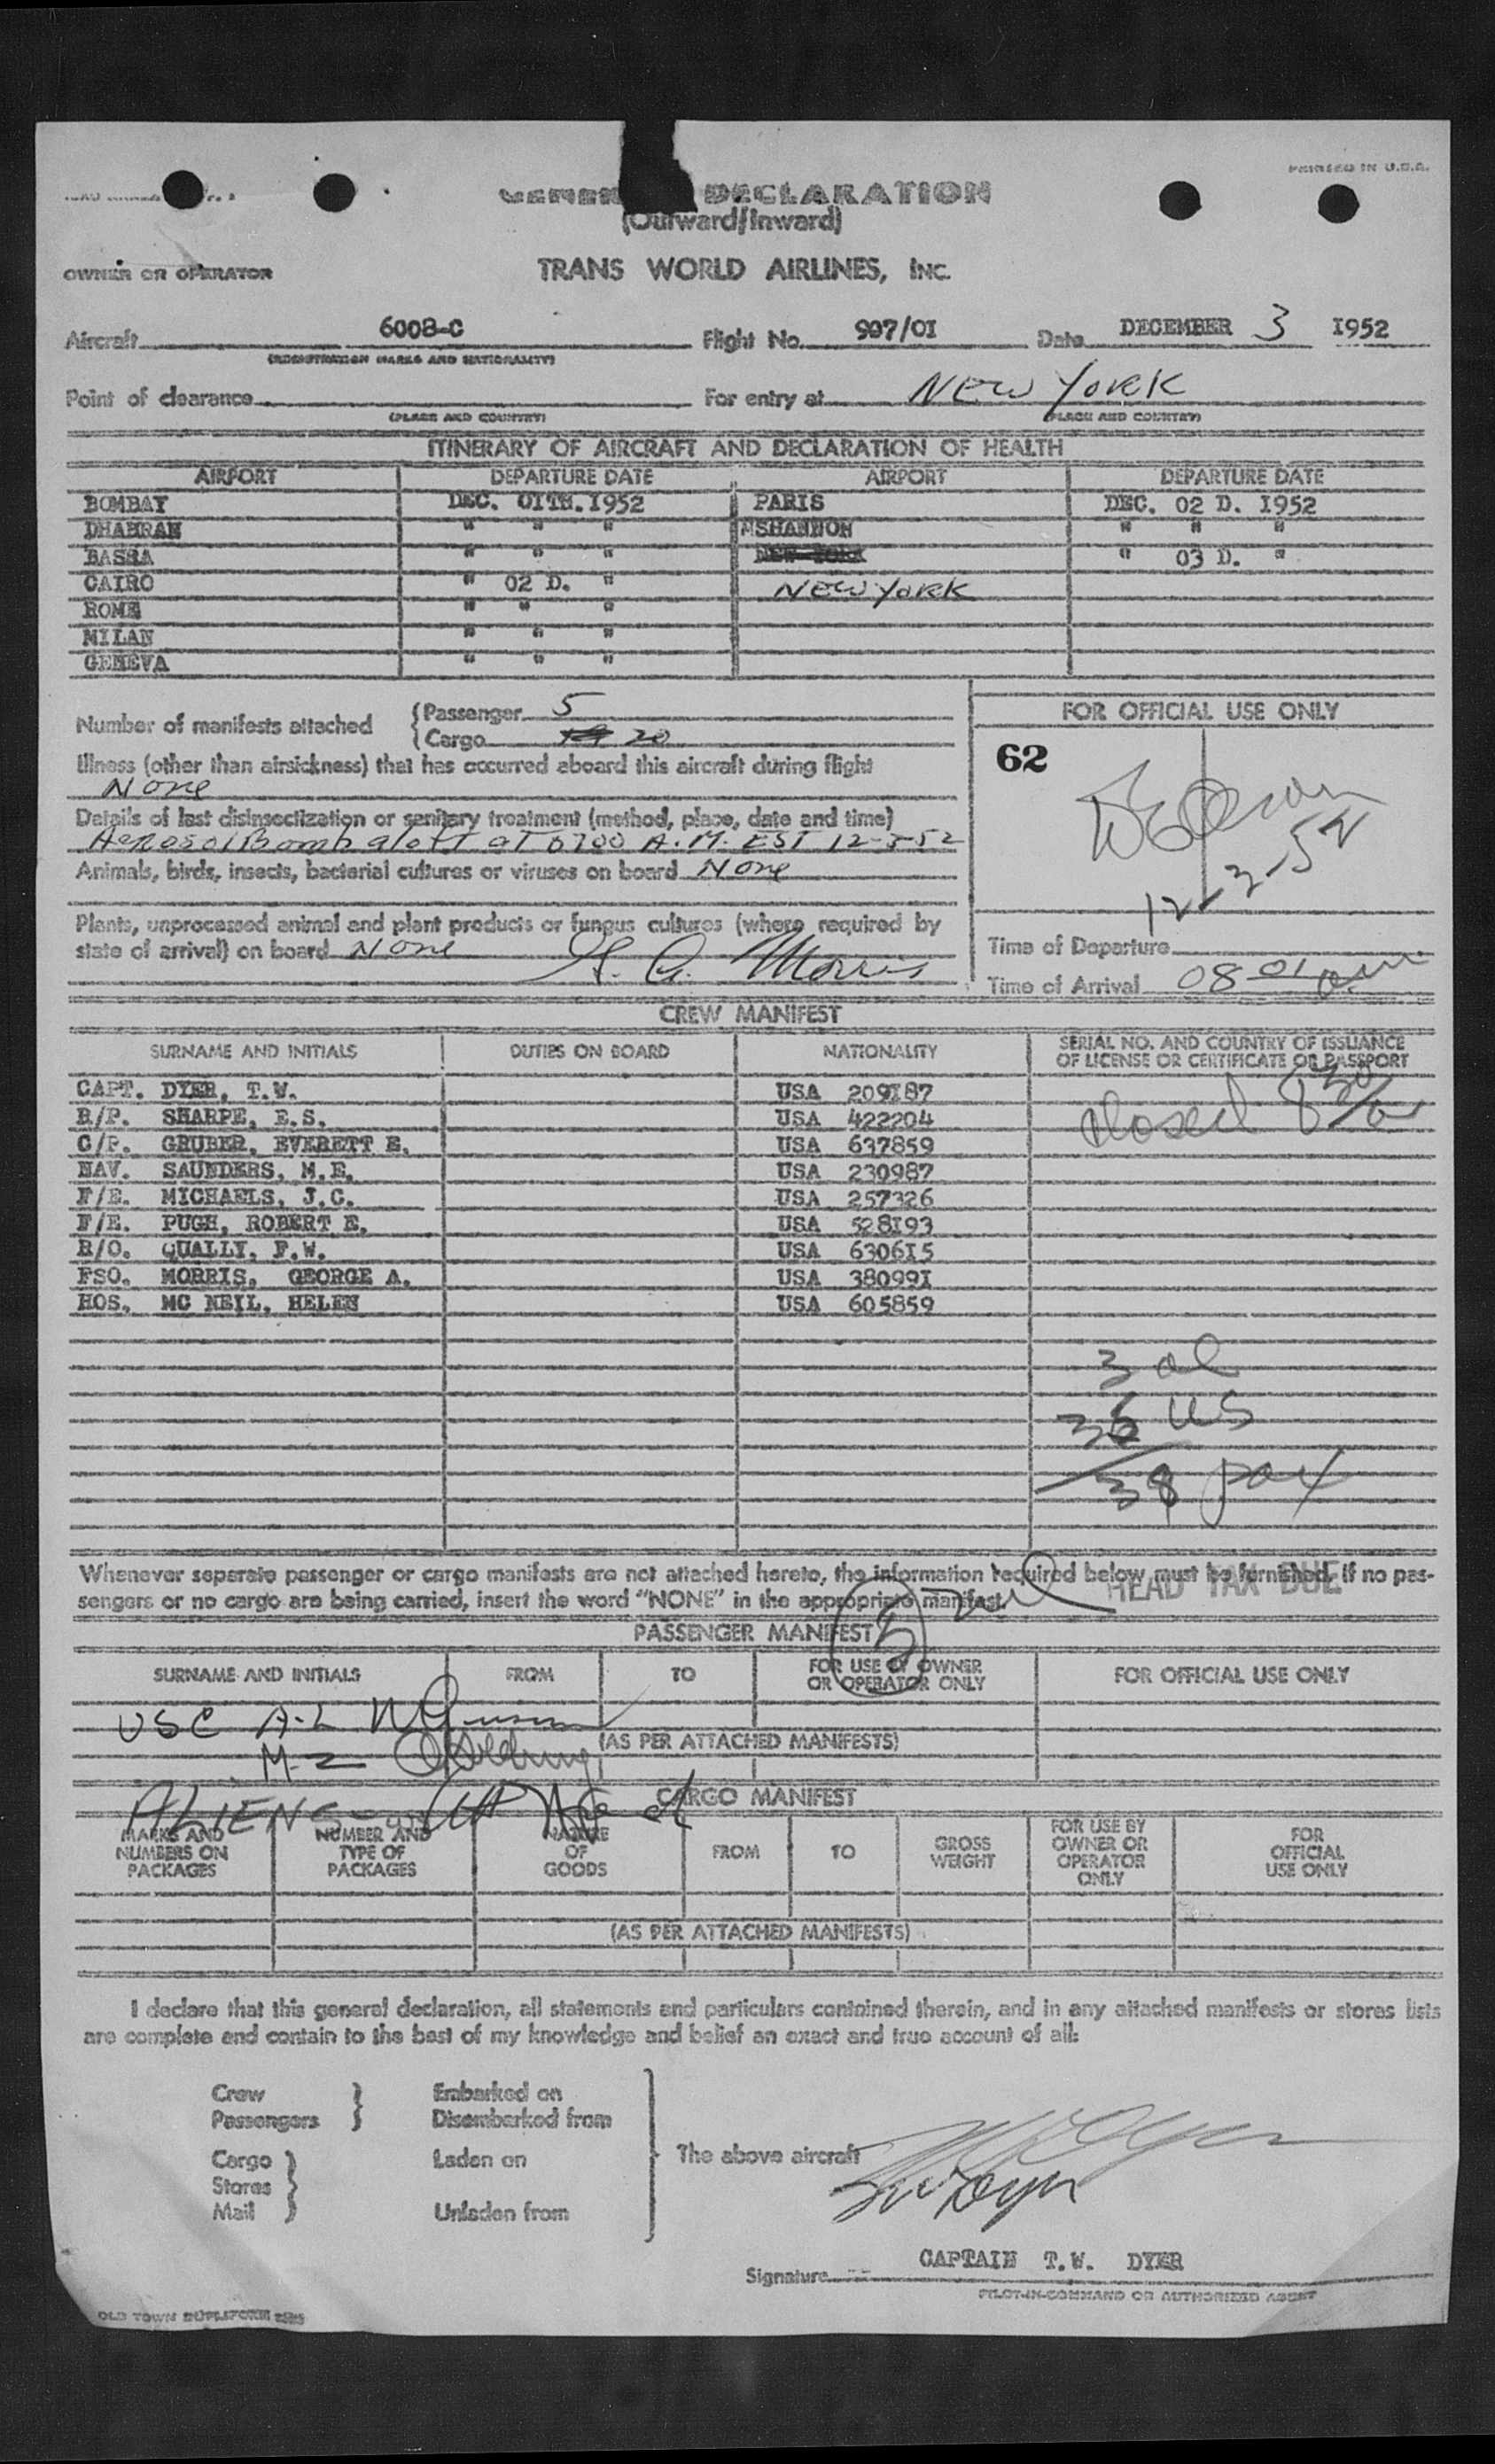 PRINTED IN U.S.A.
DECLARATION
(Outward/Inward)
OWNER OR OPERATOR TRANS WORLD AIRLINES, INC.
Aircraft 6008-C Flight No. 907/01 Date DECEMBER 3 1952
(REGISTRATION MARKS AND NATIONALITY)
Point of clearance For entry at NEW YORK
(PLACE AND COUNTRY) (PLACE AND COUNTRY)
ITINERARY OF AIRCRAFT AND DECLARATION OF HEALTH
AIRPORT DEPARTURE DATE AIRPORT DEPARTURE DATE
BOMBAY DEC. 01TH. 1952 PARIS DEC. 02 D. 1952
DHAHRAN " " " SHANNON " " "
BASRA " " " NEW YORK " 03 D. "
CAIRO " 02 D. " NEW YORK
ROME " " "
MILAN " " "
GENEVA " " "
Number of manifests attached {Passenger 5
{Cargo 20
FOR OFFICIAL USE ONLY
62
12-3-52
Illness (other than airsickness) that has occurred aboard this aircraft during flight
None
Details of last disinsectization or sanitary treatment (method, place, date and time)
Aerosol Bomb aloft at 0700 A.M. EST 12-3-52
Animals, birds, insects, bacterial cultures or viruses on board None
Plants, unprocessed animal and plant products or fungus cultures (where required by
state of arrival) on board None G. A. Morris
Time of Departure
Time of Arrival 08 01 am
CREW MANIFEST
SURNAME AND INITIALS DUTIES ON BOARD NATIONALITY SERIAL NO. AND COUNTRY OF ISSUANCE
OF LICENSE OR CERTIFICATE OR PASSPORT
CAPT. DYER, T.W. USA 209187
R/P. SHARPE, E.S. USA 422204 closed 8 30
C/P. GRUBER, EVERETT E. USA 637859
NAV. SAUNDERS, M.E. USA 230987
F/E. MICHAELS, J.C. USA 257326
F/E. PUGH, ROBERT E. USA 528193
R/O. QUALLY, F.W. USA 630615
FSO. MORRIS, GEORGE A. USA 380991
HOS. MC NEIL, HELEN USA 605859
3 al
US
pax
Whenever separate passenger or cargo manifests are not attached hereto, the information required below must be furnished. If no pas-
sengers or no cargo are being carried, insert the word "NONE" in the appropriate manifest.
HEAD TAX DUE
PASSENGER MANIFEST 5
SURNAME AND INITIALS FROM TO FOR USE BY OWNER
OR OPERATOR ONLY FOR OFFICIAL USE ONLY
USC A-L
(AS PER ATTACHED MANIFESTS)
M-Z
CARGO MANIFEST
ALIENS
MARKS AND
NUMBERS ON
PACKAGES NUMBER AND
TYPE OF
PACKAGES NATURE
OF
GOODS FROM TO GROSS
WEIGHT FOR USE BY
OWNER OR
OPERATOR
ONLY FOR
OFFICIAL
USE ONLY
(AS PER ATTACHED MANIFESTS)
I declare that this general declaration, all statements and particulars contained therein, and in any attached manifests or stores lists
are complete and contain to the best of my knowledge and belief an exact and true account of all:
Crew Embarked on
Passengers Disembarked from
Cargo Laden on The above aircraft
Stores
Mail Unladen from
TW Dyer
Signature CAPTAIN T.W. DYER
PILOT-IN-COMMAND OR AUTHORIZED AGENT
OLD TOWN DUPLIFORM